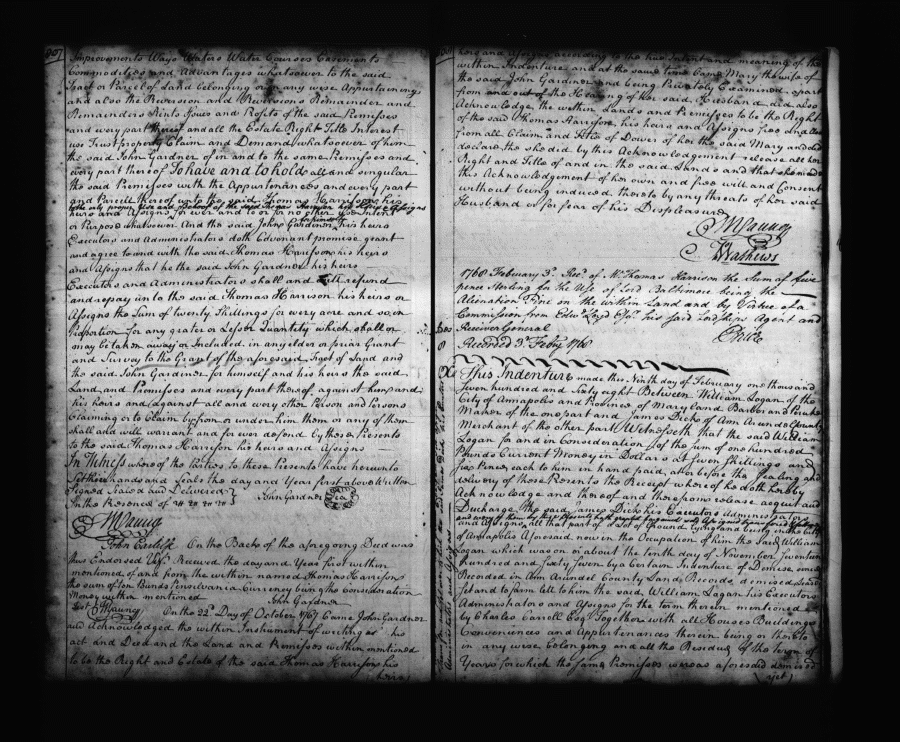 907
Improvements Ways Waters Water Courses Easements
Commodities and Advantages whatsoever to the said
Tract or Parcel of Land belonging or in any wise Appurtaining
and also the Reversion and Reversions Remainder and
Remainders Rents Issues and Profits of the said Premisses
and every part thereof and all the Estate Right Title Interest
use Trust property Claim and Demand whatsoever of him
the said John Gardner of in and to the same Premisses and
every part thereof To have and to hold all and singular
the said Premisses with the Appurtenances and every part
and Parcell thereof unto the said Thomas Harrison his
heirs and Assigns for ever and to or for no other use Intent
or Purpose whatsoever And the said John Gardner his heirs
Executors and Administrators doth Covenant promise grant
and agree to and with the said Thomas Harrison his heirs
and Assigns that he the said John Gardner his heirs
Executors and Administrators shall and will refund
and repay unto the said Thomas Harrison his heirs or
Assigns the Sum of twenty Shillings for every acre and so in
Proportion for any greater or Lesser Quantity which shall or
may be taken away or Included in any elder or prior Grant
and Survey to the Grant of the aforesaid Tract of Land and
the said John Gardiner for himself and his heirs the said
Land and Premisses and every part thereof against him and
his heirs and against all and every other Person and Persons
Claiming or to Claim by from or under him them or any of them
shall and will warrant and for ever defend by these Presents
to the said Thomas Harrison his heirs and Assigns
In Witness whereof the Parties to these Presents have hereunto
Set their hands and Seals the day and Year first above Written
Signed Sealed and Delivered
In the Presence of
John Gardner
On the Back of the aforegoing Deed was
thus Endorsed Received the day and Year first within
mentioned of and from the within named Thomas Harrison
the sum of Ten Pounds Pensylvania Currency being the Consideration
Money within mentioned
John Gardner
On the 22 Day of October 1767 Came John Gardner
and Acknowledged the within Instrument of writing as his
act and Deed and the Land and Premisses within mentioned
to be the Right and Estate of the said Thomas Harrison his
heirs
heirs and Assigns according to the true Intent and meaning of the
within Indenture and at the same time Came Mary the wife of
the said John Gardiner and being Privately Examined apart
from and out of the Hearing of her said Husband did also
Acknowledge the within Lands and Premisses to be the Right
of the said Thomas Harrison his heirs and Assigns free and clear
from all Claim and Title of Dower of her the said Mary and did
declare that she did by this Acknowledgement release all her
Right and Title of and in the said Lands and that she made
this Acknowledgement of her own and free will and Consent
without being induced thereto by any threats of her said
Husband or for fear of his Displeasure
Mathews
1768 February 3d. Recd. of Mr. Thomas Harrison the Sum of five
pence Sterling for the Use of Lord Baltimore being the
Alienation Fine on the within Land and by Virtue of a
Commission from Edwd. Lloyd Esqr. his said Lordships Agent and
Receiver General
Recorded 3d. Feby 1768
This Indenture made this Ninth day of February one thousand
Seven hundred and Sixty eight Between William Logan of the
City of Annapolis and Province of Maryland Barber and Peruke
Maker of the one part and James Dick of Ann Arundel County
Merchant of the other part Witnesseth that the said William
Logan for and in Consideration of the sum of one hundred
Pounds Current Money in Dollars at Seven Shillings and
Six Pence each to him in hand paid at or before the Sealing and
delivery of these Presents the Receipt whereof he doth hereby
Acknowledge and thereof and therefrom release acquit and
Discharge the said James Dick his Executors Administrators
and Assigns all that part of a Lot of Ground lying and being in the City
of Annapolis Aforesaid now in the Occupation of him the Said William
Logan which was on or about the tenth day of November Seventeen
hundred and Sixty Seven by a Certain Indenture of Demise
Recorded in Ann Arundel County Land Records demised
Set and to farm Let to him the said William Logan his Executors
Administrators and Assigns for the term therein mentioned
by Charles Carroll Esqr. Together with all Houses Buildings
Conveniences and Appurtenances therein being or thereto
in any wise belonging and all the Residue of the term of
Years for which the same Premisses was as aforesaid demised